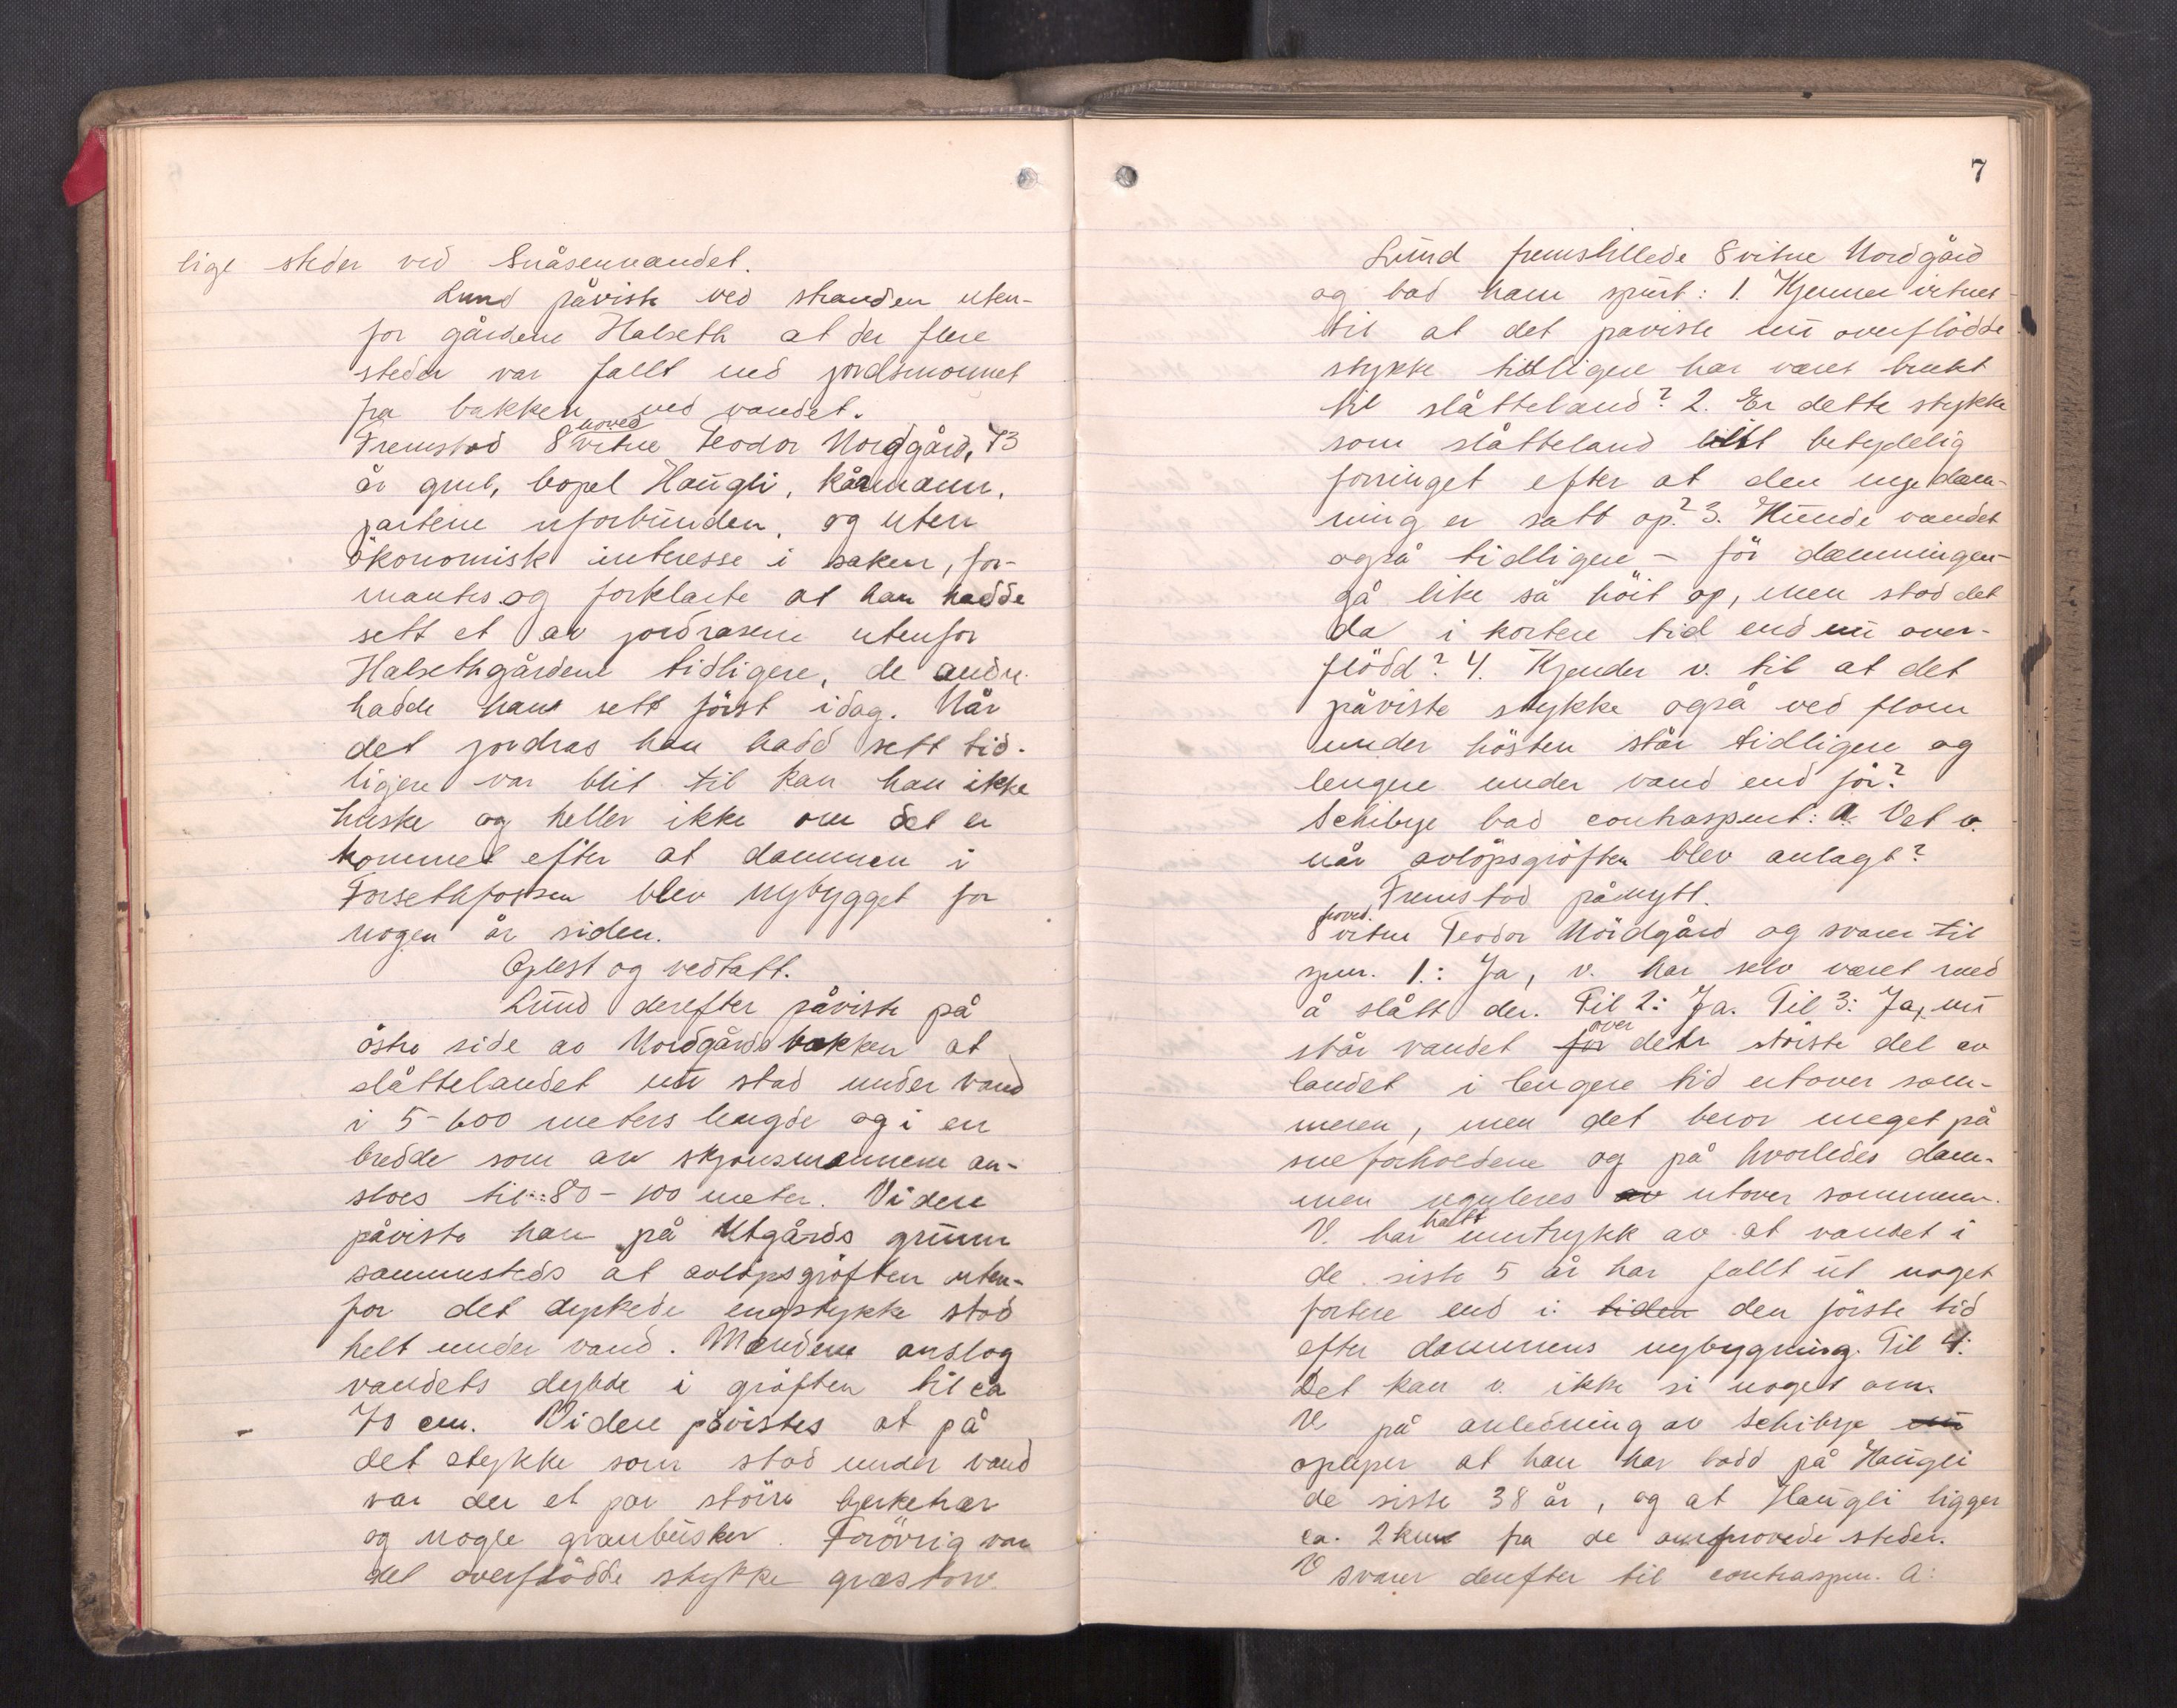 lige steder ved Snåsenvandet.
Lund påviste ved stranden uten-
for gårdene Halseth at der flere
steder var fallt ned jordsmonnet
fra bakken ved vandet.
hoved
Fremstod 8 vitne Teodor Nordgård, 73
år gml, bopel Haugli, kårmann,
partene uforbunden, og uten
ökonomisk interesse i saken, for-
mantes og forklarte at han hadde
sett et av jordrasene utenfor
Halsethgårdene tidligere, de andre
hadde han sett först idag. Når
det jordras han hadd sett tid-
ligere var blit til kan han ikke
huske og heller ikke om det er
kommet efter at dammen i
Forsethfossen blev nybygget for
nogen år siden.
Oplest og vedtatt.
Lund derefter påviste på
östre side av Nordgårdsbakken at
slåttelandet nu stod under vand
i 5-600 meters lengde og i en
bredde som av skjönsmannene an-
sloes til: 80 - 100 meter. Videre
påviste han på Utgårds grunn
sammesteds at avlöpsgröften uten-
for det dyrkede engstykke stod
helt under vand. Mendene anslog
vandets dybde i gröften til ca
70 cm. Videre påvistes at på
det stykke som stod under vand
var der et par större bjerketrær
og nogle granbusker. Forövrig var
det overflödde stykke græstorv.
7
Lund fremstillede 8 vitne Nordgård
og bad ham spurt: 1. Kjenner vitnet
til at det påviste nu overflödde
stykke tidligere har været brukt
til slåtteland? 2. Er dette stykke
som slåtteland blit betydelig
forringet efter at den nye dam-
ning er satt op? 3. Kunde vandet
også tidligere - för dæmningen -
gå like så höit op, men stod det
da i kortere tid end nu over-
flödd? 4. Kjender v. til at det
påviste stykke også ved flom
under hösten står tidligere og
lengere under vand end för?
Schibye bad contraspurt: a. Vet v.
når avlöpsgröften blev anlagt?
Fremstod pånytt.
hoved.
8 vitne Teodor Nordgård og svarer til
spm. 1.: Ja, v. har selv været med
å slått der. Til 2: Ja. Til 3: Ja, nu
over
står vandet for dette störste del av
landet i lengere tid utover som-
meren, men det beror meget på
sneforholdene og på hvorledes dam-
men reguleres av utover sommeren.
hatt
V. har inntrykk av at vandet i
de siste 5 år har fallt ut noget
fortere end i tiden den förste tid
efter dammens nybygning. Til 4:
Det kan v. ikke si noget om.
V. på anledning av Schibye nu
oplyser at han har bodd på Haugli
de siste 38 år, og at Haugli ligger
ca. 2 km fra de omprovede steder.
V svarer derefter til contraspm. a: